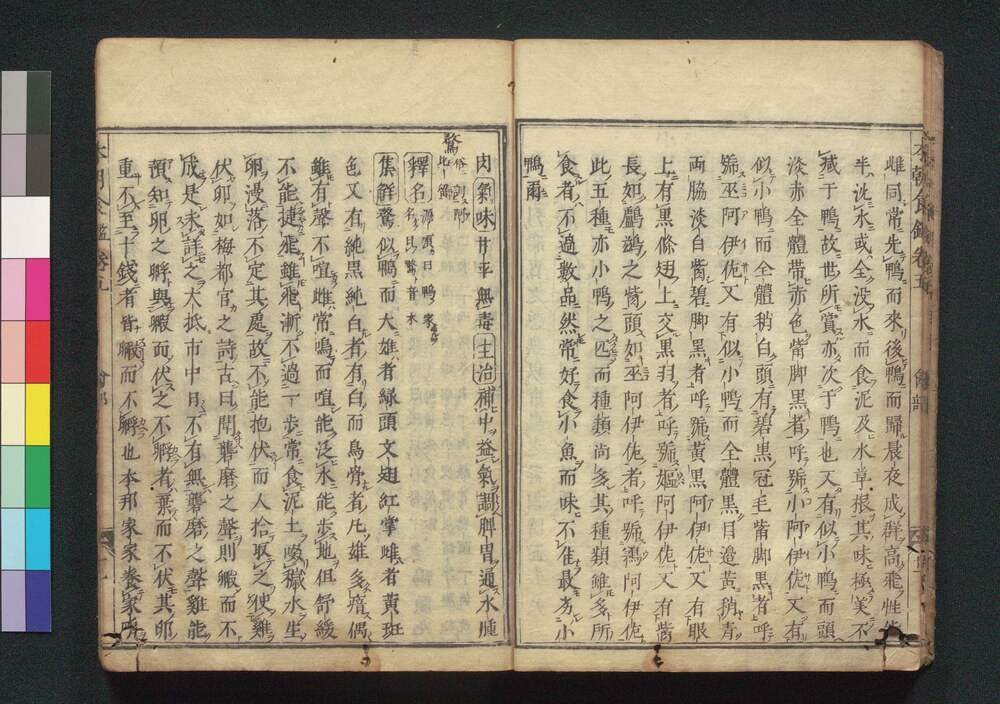 雌同常先鴨而來後鴨而歸晨夜成群高飛性能
半沈水或全没水而食泥及水草根其味極美不
減于鴨故世所賞亦次于鴨也又有似小鴨而頭
淡赤全體帶赤色觜脚黑者呼號小阿伊佐又有
似小鴨而全體稍白頭有碧黑冠毛觜脚黑者呼
號巫阿伊佐又有似小鴨而全體黑目邉黃稍青
兩脇淡白觜碧脚黑者呼號黃黑阿伊佐又有眼
上有黑條翅上交黑羽者呼號嫗阿伊佐又有觜
長如鸕鷀之觜頭如巫阿伊佐者呼號鸿阿伊佐
此五種亦小鴨之匹而種類尚多其種類雖多所
食者不過數品然常好食小魚而味不佳最劣小
鴨爾
肉氣味甘平無毒主治補中益氣調脾胃通水腫
鶩
釋名
集解鶩似鴨而大雄者緑頭文翅紅掌雌者黃斑
色又有純黑純白者有白而烏骨者凡雄多瘖偶
雖有聲不喧雌常鳴而喧能泛水能歩地但舒緩
不能捷飛雖飛漸不過一歩常食泥土喫穢水生
卵漫落不定其處故不能抱伏而人拾取之使雞
伏卵如梅都官之詩古曰聞礱磨之聲則毈而不
成是未詳之大抵市中日不有無礱磨之聲雞能
預知卵之孵與毈而伏之不孵者棄而不伏其卵
重不至十錢者皆毈而不孵也本邦家家養
本朝食鑑 卷五 禽部